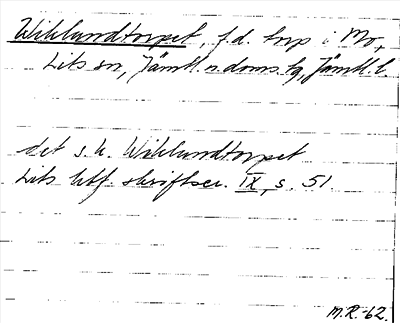 Wiklundtorpet, f.d. torp i Mo,
Lits sn, Jämtl. n. doms. tg, Jämtl. l.
det s.k. Wiklundtorpet
Lits htf. skriftser. IX, s. 51.
M.R.-62.